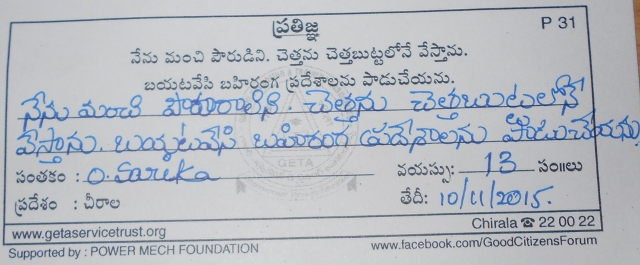 ప్రతిజ్ఞ P 31
నేను మంచి పౌరుడిని. చెత్తను చెత్తబుట్టలోనే వేస్తాను.
బయటవేసి బహిరంగ ప్రదేశాలను పాడుచేయను.
నేను మంచి పౌరురాలిని చెత్తను చెత్తబుటలోనే
వేస్తాను. బయటవేసి బహిరంగ ప్రదేశాలను పాడుచేయను
GETA
సంతకం : O. Sarika వయస్సు: 13 సం॥లు
ప్రదేశం : చీరాల తేదీ: 10/11/2015.
www.getaservicetrust.org Chirala ☎ 22 00 22
Supported by : POWER MECH FOUNDATION www.facebook.com/GoodCitizensForum